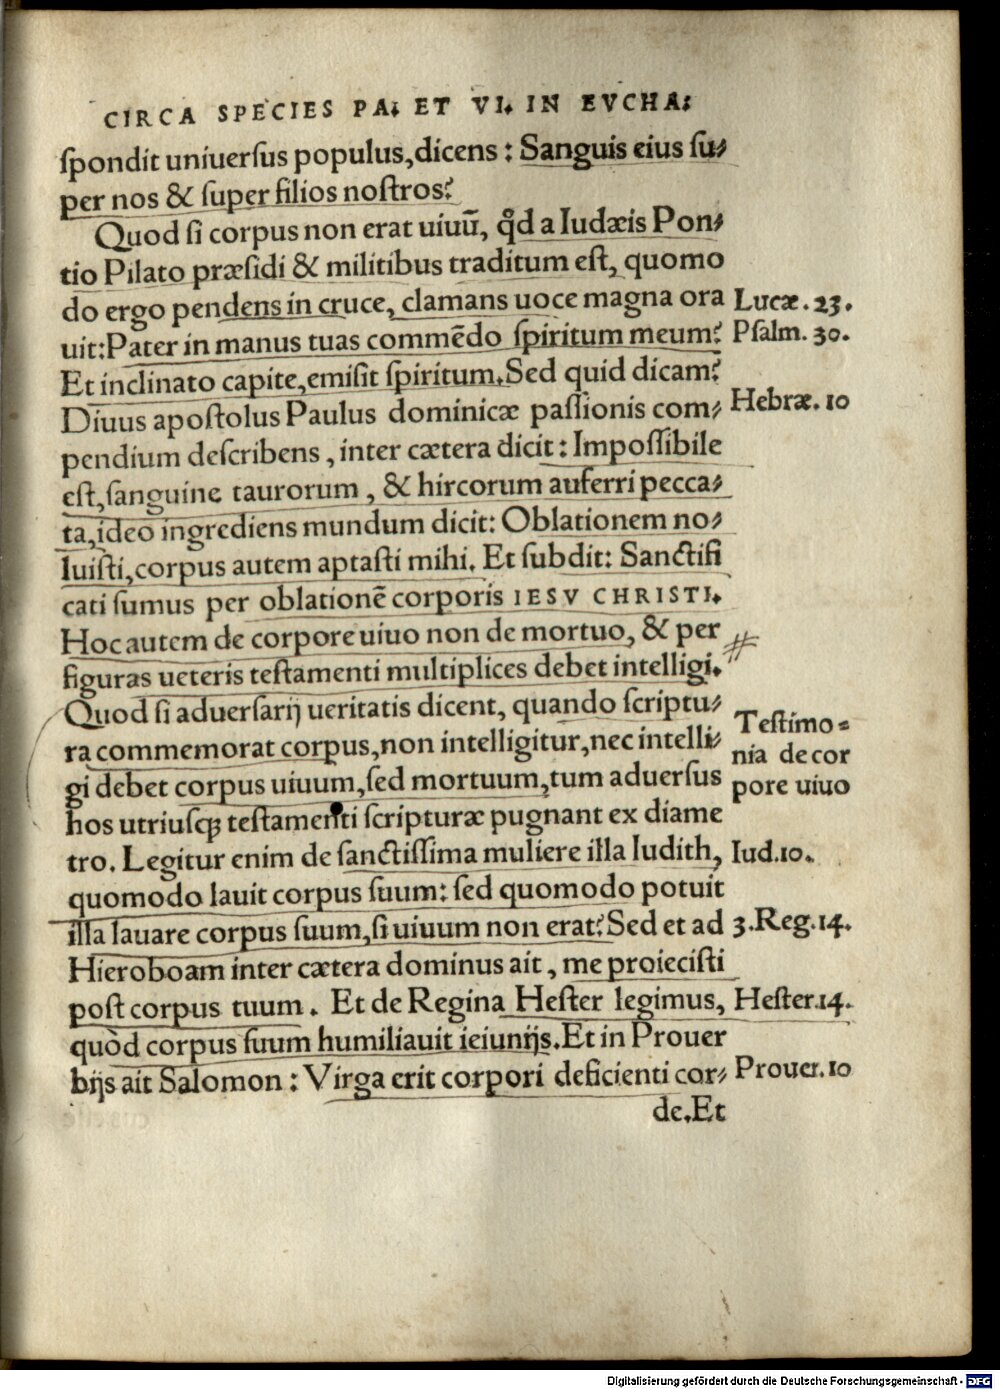 CIRCA SPECIES PA. ET VI. IN EVCHA.
ſpondit uniuerſus populus, dicens: Sanguis eius ſu⸗
per nos & ſuper filios noſtros?
Quod ſi corpus non erat uiuū, qđ a Iudæis Pon⸗
tio Pilato præſidi & militibus traditum eſt, quomo
do ergo pendens in cruce, clamans uoce magna ora
uit: Pater in manus tuas commēdo ſpiritum meum?
Et inclinato capite, emiſit ſpiritum. Sed quid dicam?
Diuus apoſtolus Paulus dominicæ paſſionis com⸗
pendium deſcribens, inter cætera dicit: Impoſſibile
eſt, ſanguine taurorum, & hircorum auferri pecca⸗
ta, ideo ingrediens mundum dicit: Oblationem no⸗
luiſti, corpus autem aptaſti mihi. Et ſubdit: Sanctifi
cati ſumus per oblationē corporis IESV CHRISTI.
Hoc autem de corpore uiuo non de mortuo, & per
figuras ueteris teſtamenti multiplices debet intelligi.
Quod ſi aduerſarij ueritatis dicent, quando ſcriptu⸗
ra commemorat corpus, non intelligitur, nec intelli⸗
gi debet corpus uiuum, ſed mortuum, tum aduerſus
hos utriuſqꝫ teſtamenti ſcripturæ pugnant ex diame
tro. Legitur enim de ſanctiſſima muliere illa Iudith,
quomodo lauit corpus ſuum: ſed quomodo potuit
illa lauare corpus ſuum, ſi uiuum non erat? Sed et ad
Hieroboam inter cætera dominus ait, me proieciſti
poſt corpus tuum. Et de Regina Heſter legimus,
quòd corpus ſuum humiliauit ieiunijs. Et in Prouer
bijs ait Salomon: Virga erit corpori deficienti cor⸗
de. Et
Lucæ. 23.
Pſalm. 30.
Hebræ. 10
Teſtimo⸗
nia de cor
pore uiuo
Iud. 10.
3. Reg. 14.
Heſter. 14.
Prouer. 10
Digitalisierung gefördert durch die Deutsche Forschungsgemeinschaft - DFG